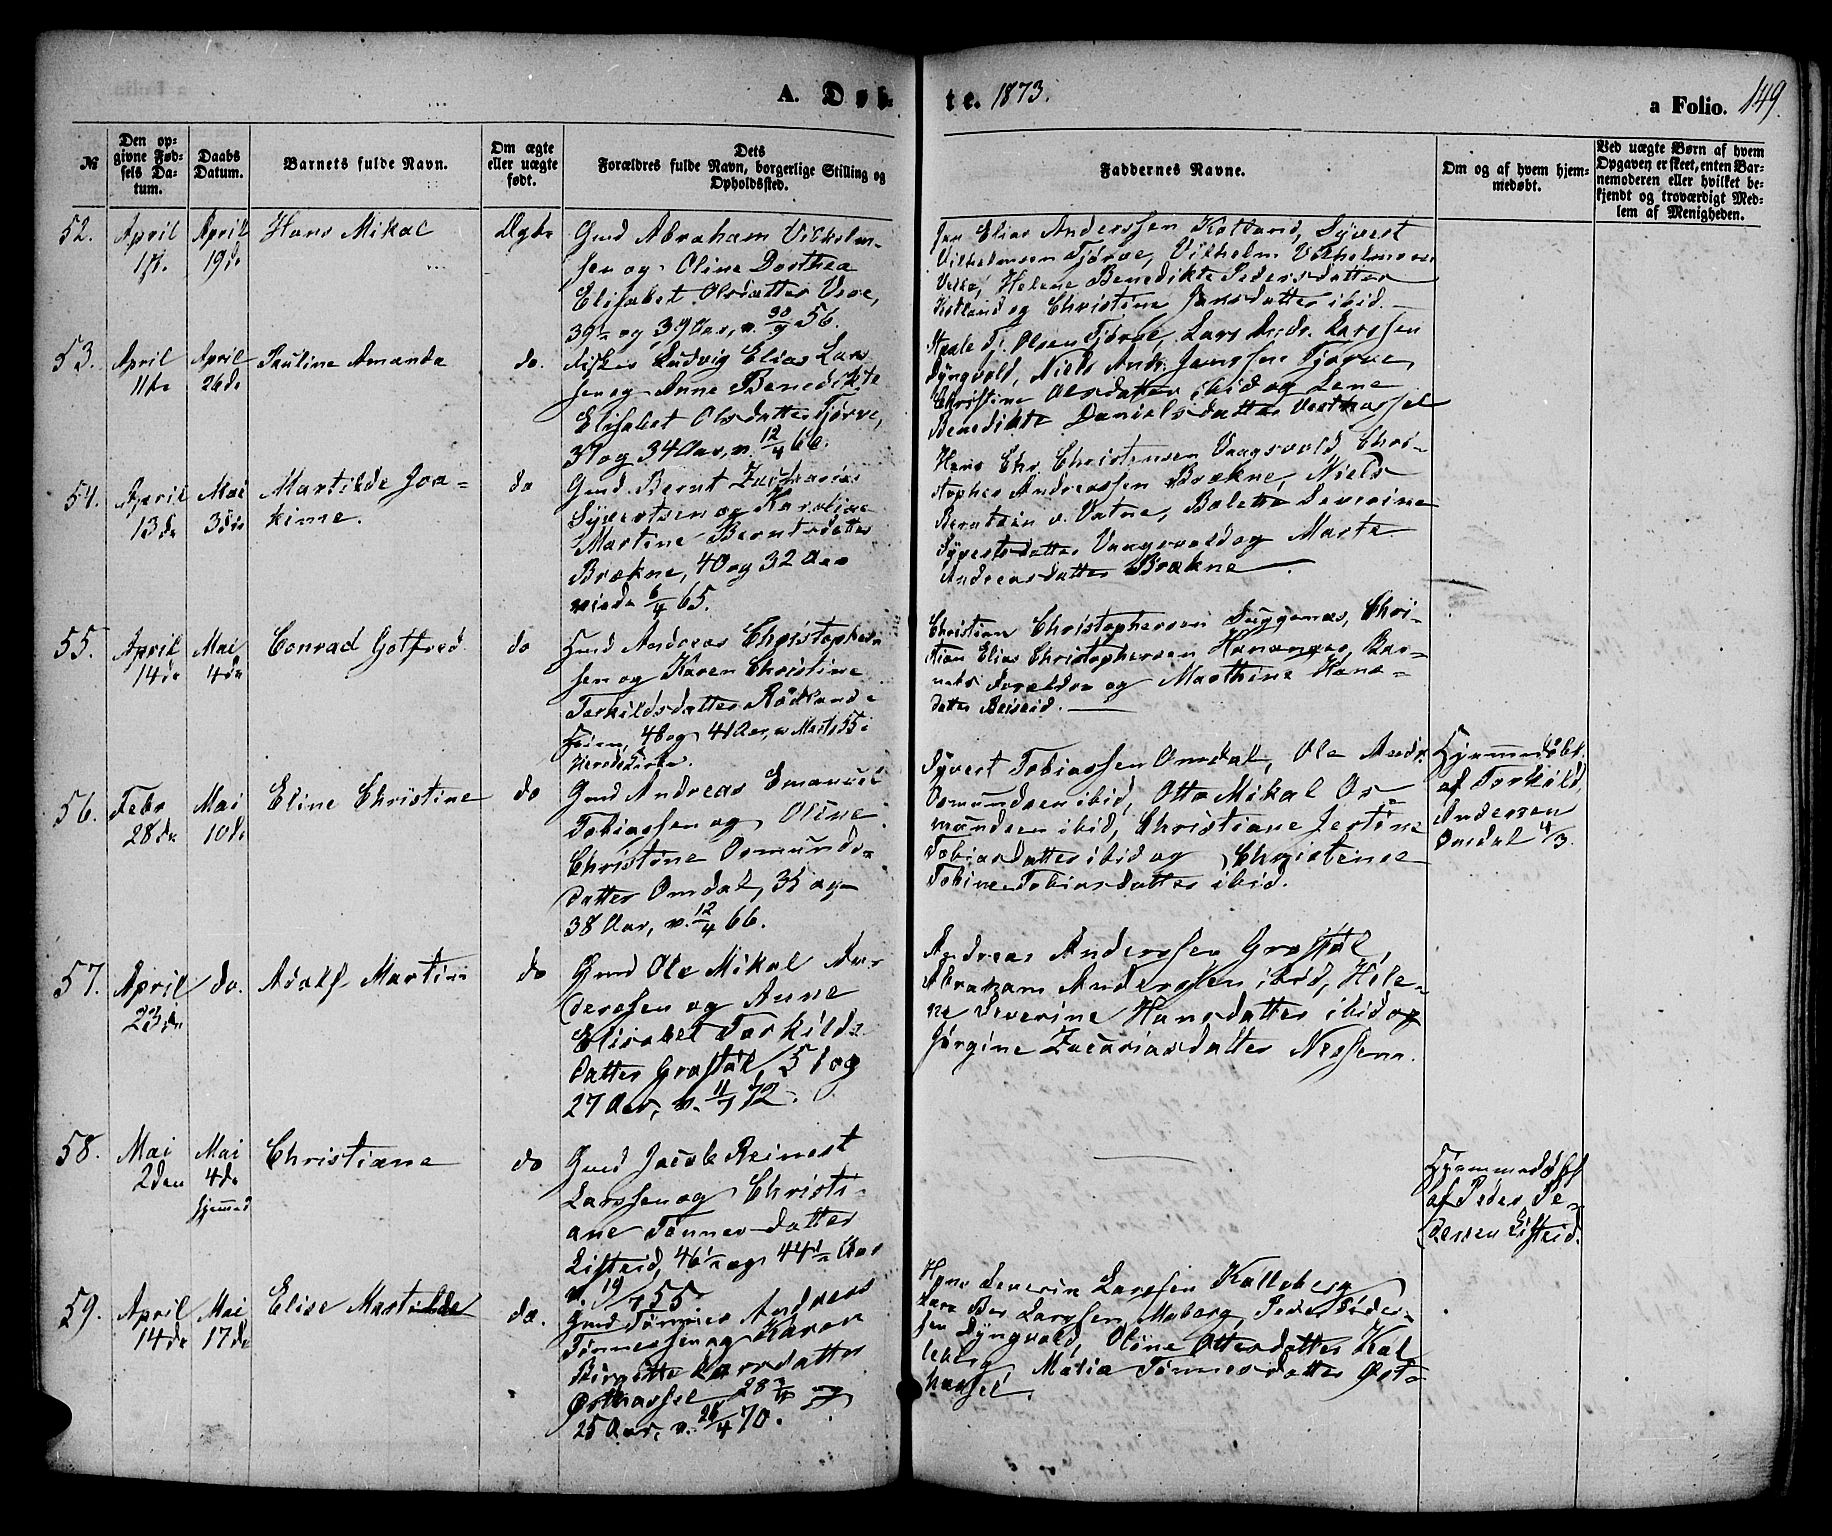 A. Døb-
te. 1873.
a Folio. 149.
№
Den op-
givne Fød-
sels Da-
tum.
Daabs
Datum.
Barnets fulde Navn.
Om ægte
eller uægte
født.
Dets
Forældres fulde Navn, borgerlige Stilling og
Opholdssted.
Faddernes Navne.
Om og af hvem hjem-
medøbt.
Ved uægte Børn af hvem
Opgaven er skeet, enten Bar-
nemoderen eller hvilket be-
kjendt og troværdigt Med-
lem af Menigheden.
52.
April
April
19de
Hans Mikal
Ægte
Gmd Abraham Vilhelm-
sen og Oline Dorthea
Elisabet Olsdatter
39½ og 39 Aar, v. 30/9 56.
Jan Elias Anderssen Kotland, Syvert
Vilhelmsen Tjørve, Vilhelm Vilhelmsen
Helene Benedikte Pedersdatter
Kotland og Christine Jansdatter ibid.
53.
April
11te
April
26de
Pauline Amanda
do.
Ludvig Elias Lars
sen og Anne Benedikte
Elisabet Olsdatter Tjørve,
37 og 34 Aar, v. 12/4 66.
Olsen Tjørve, Lars Andr. Larssen
Lyngvold, Niels Andr. Jenssen Tjørve,
Christine Olsdatter ibid og Lene
Benedikte Danielsdatter Vesthassel
54.
April
13de
Mai
3die
Martilde Joa-
kime.
do
Gmd Bernt Zacharias
Syvertsen og Karoline
Martine Berntsdatter
Brækne, 40 og 32 Aar
viede 6/4 65.
Hans Chr. Christensen Vaagsvold, Chri-
stopher Andreassen Brækne, Niels
Berntsen v. Vatne, Bolette Severine
Syvertsdatter Vaagsvold og Marte
Andreasdatter Brækne
55.
April
14de
Mai
4de
Conrad Gotfred
do
Gmd Andreas Christopher
sen og Karen Christine
Torkildsdatter Rødland
48 og 41 Aar, v. Marts 55 i
Herredskirke.
Christian Christophersen Chri-
stian Elias Christophersen Hananger, Bar-
nets Forældre og Marthine Hans-
datter
56.
Febr
28de
Mai
10de
Eline Christine
do
Gmd Andreas Emanuel
Tobiassen og Oline
Christine Osmunds-
datter Omdal, 35 og
38 Aar, v. 12/4 66.
Syvert Tobiassen Omdal, Ole Andr.
Osmundsen ibid, Otto Mikal Os-
mundsen ibid, Christiane Jestine
Tobiasdatter ibid og Christense
Tobine Tobiasdatter ibid.
Hjemmedøbt
af Torkild
Andersen
Omdal 4/3.
57.
April
23de
do.
Adolf Martin
do
Gmd Ole Mikal An-
derssen og Anne
Elisabet Torkilds-
datter Grostøl, 51 og
27 Aar, v. 11/7 72.
Andreas Anderssen Grostøl,
Abraham Anderssen ibid, Hele-
ne Severine Hansdatter ibid og
Jørgine Zacariasdatter Nesheim.
58.
Mai
2den
Mai
4de
hjemmed
Christiane
do
Gmd Jacob Reinert
Larssen og Christi-
ane Tønnesdatter
Listeid, 46½ og 44½ Aar
v. 19/7 55
Hjemmedøbt
af Peder Pe-
dersen Listeid.
59.
April
14de
Mai
17de
Elise Martilde
do.
Gmd Tønnes Andreas
Tønnessen og Karen
Birgitte Larsdatter
Østhassel 28 3/4 og
25 Aar, v. 26/4 70.
Hans Severin Larssen Kalleberg
Lars Ber Larssen Maberg, Peder Peder-
sen Lyngvold, Oline Ottersdatter Kal-
leberg, Malia Tønnesdatter Øst-
hassel.